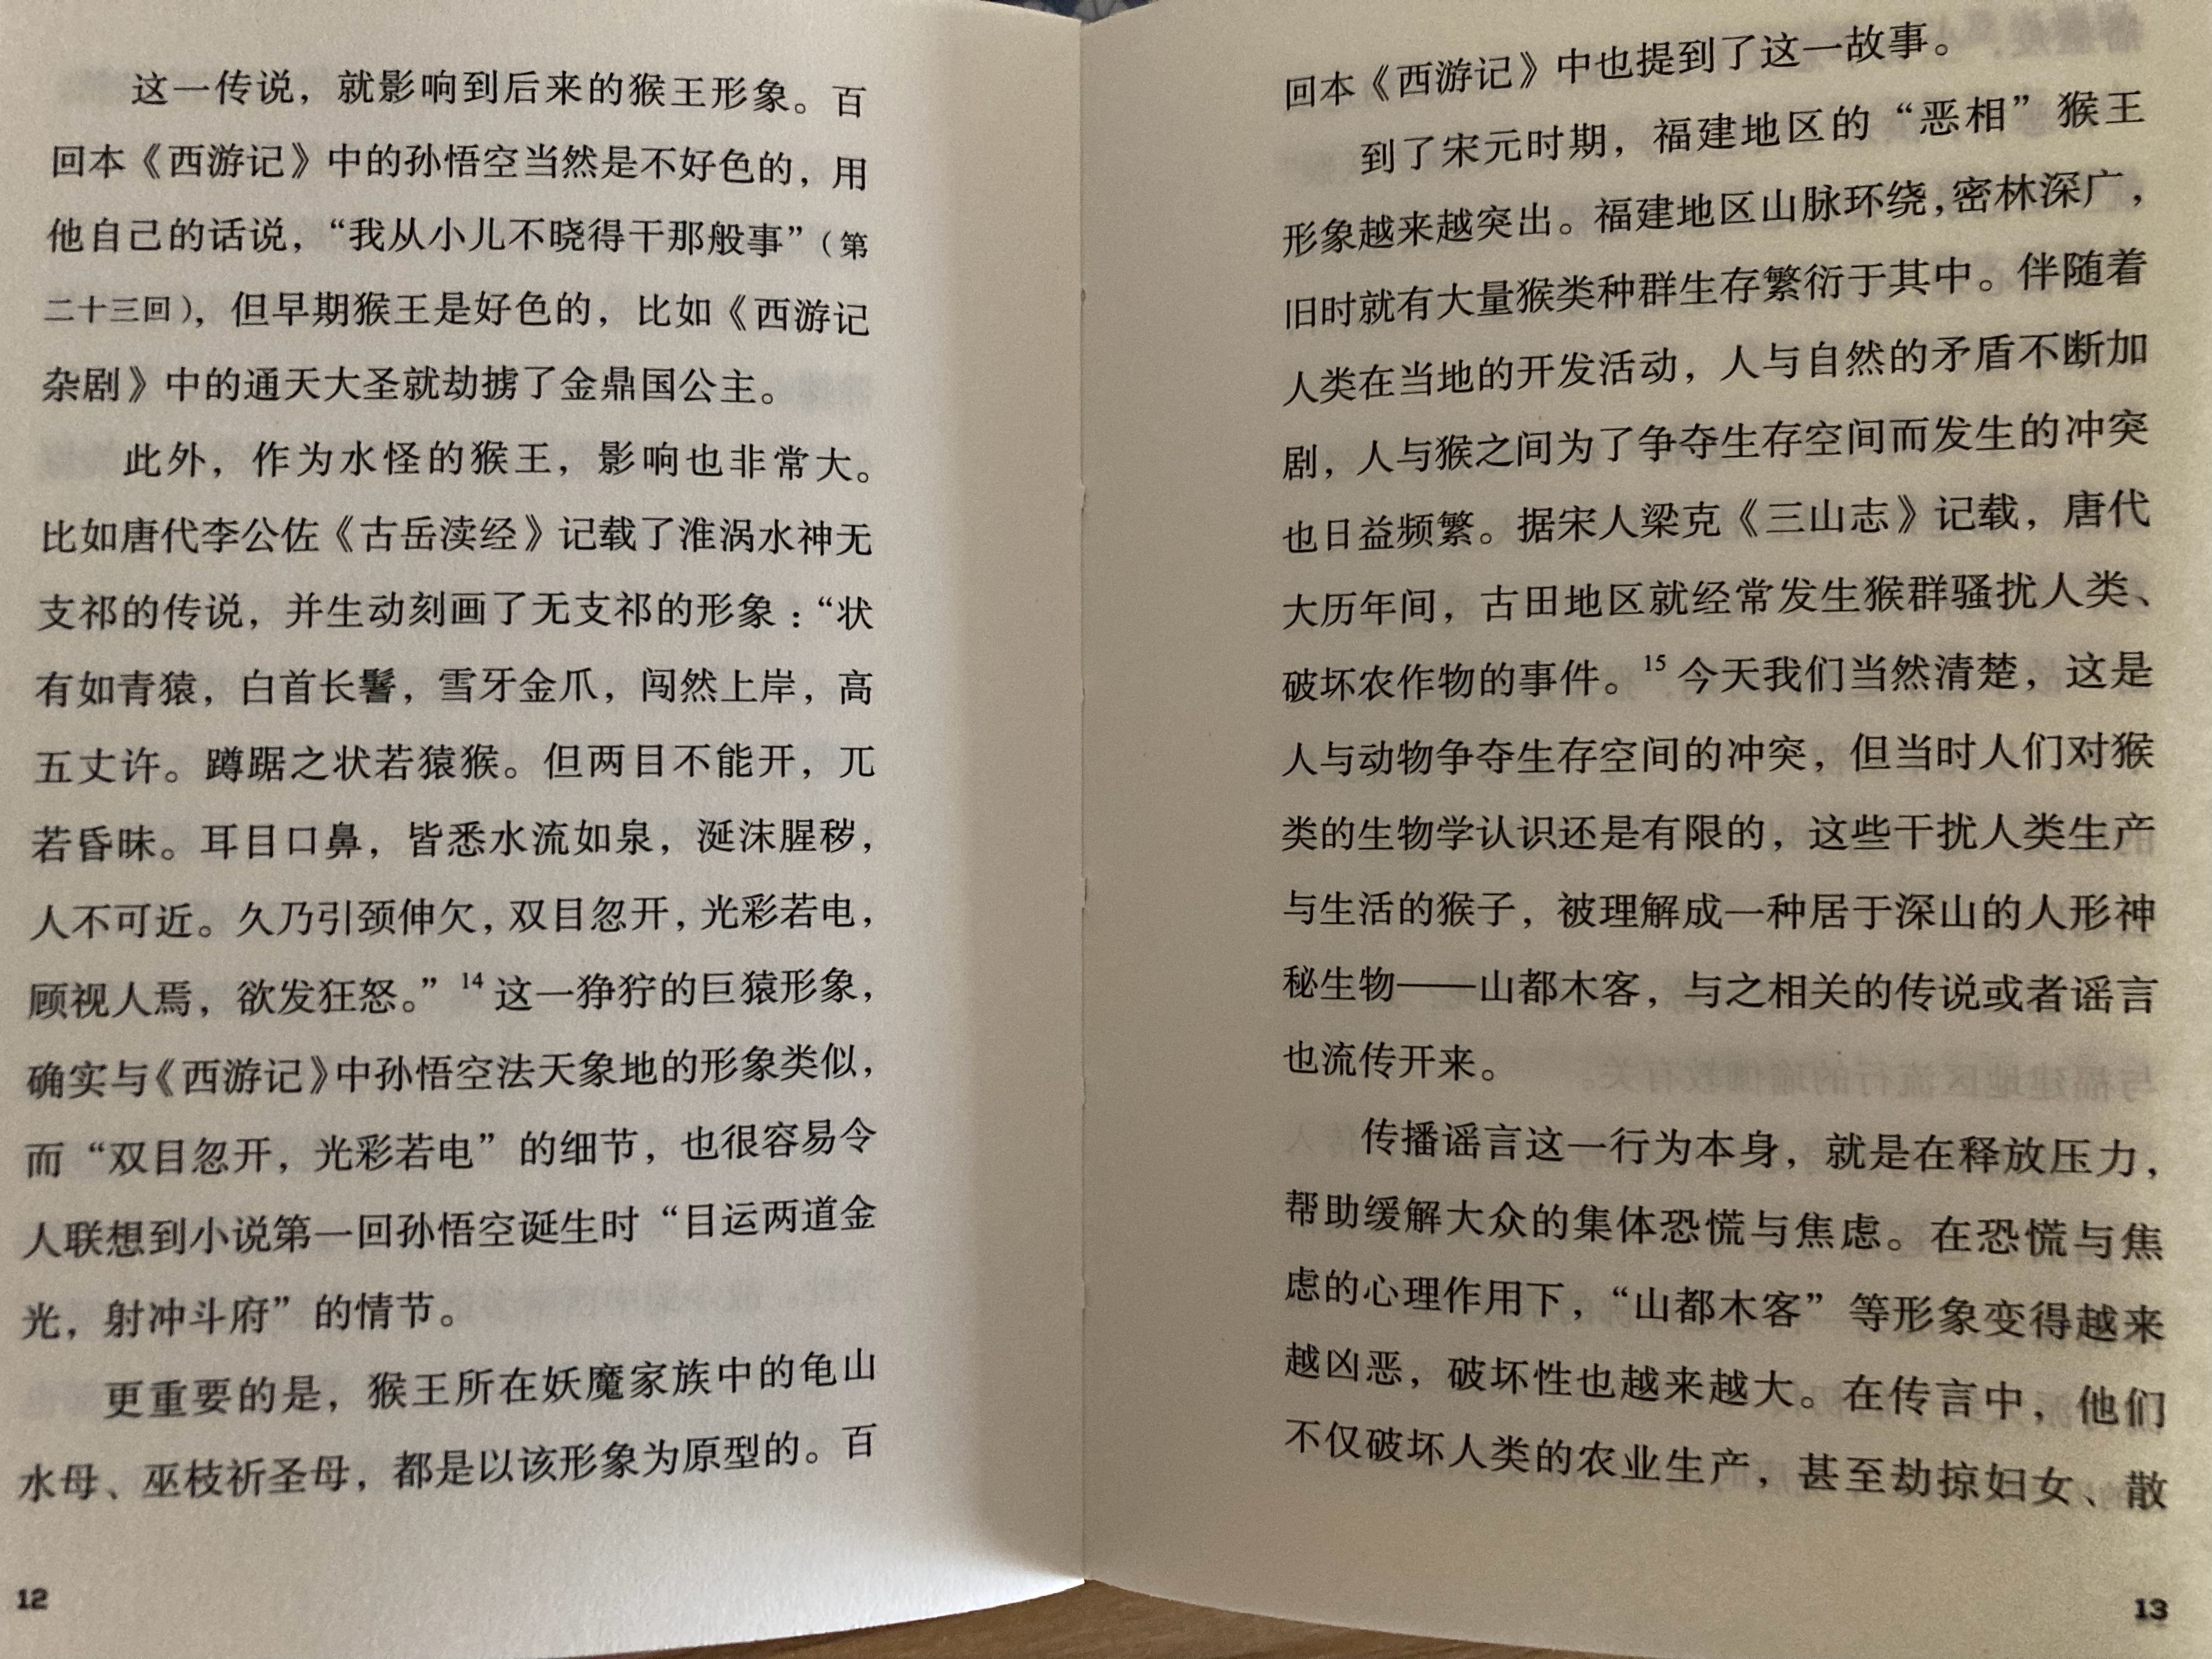 这一传说，就影响到后来的猴王形象。百
回本《西游记》中的孙悟空当然是不好色的，用
他自己的话说，“我从小儿不晓得干那般事”（第
二十三回），但早期猴王是好色的，比如《西游记
杂剧》中的通天大圣就劫掳了金鼎国公主。
此外，作为水怪的猴王，影响也非常大。
比如唐代李公佐《古岳渎经》记载了淮涡水神无
支祁的传说，并生动刻画了无支祁的形象：“状
有如青猿，白首长鬐，雪牙金爪，闯然上岸，高
五丈许。蹲踞之状若猿猴。但两目不能开，兀
若昏昧。耳目口鼻，皆悉水流如泉，涎沫腥秽，
人不可近。久乃引颈伸欠，双目忽开，光彩若电，
顾视人焉，欲发狂怒。”14 这一狰狞的巨猿形象，
确实与《西游记》中孙悟空法天象地的形象类似，
而“双目忽开，光彩若电”的细节，也很容易令
人联想到小说第一回孙悟空诞生时“目运两道金
光，射冲斗府”的情节。
更重要的是，猴王所在妖魔家族中的龟山
水母、巫枝祈圣母，都是以该形象为原型的。百
12
回本《西游记》中也提到了这一故事。
到了宋元时期，福建地区的“恶相”猴王
形象越来越突出。福建地区山脉环绕，密林深广，
旧时就有大量猴类种群生存繁衍于其中。伴随着
人类在当地的开发活动，人与自然的矛盾不断加
剧，人与猴之间为了争夺生存空间而发生的冲突
也日益频繁。据宋人梁克《三山志》记载，唐代
大历年间，古田地区就经常发生猴群骚扰人类、
破坏农作物的事件。15 今天我们当然清楚，这是
人与动物争夺生存空间的冲突，但当时人们对猴
类的生物学认识还是有限的，这些干扰人类生产
与生活的猴子，被理解成一种居于深山的人形神
秘生物——山都木客，与之相关的传说或者谣言
也流传开来。
传播谣言这一行为本身，就是在释放压力，
帮助缓解大众的集体恐慌与焦虑。在恐慌与焦
虑的心理作用下，“山都木客”等形象变得越来
越凶恶，破坏性也越来越大。在传言中，他们
不仅破坏人类的农业生产，甚至劫掠妇女、散
13